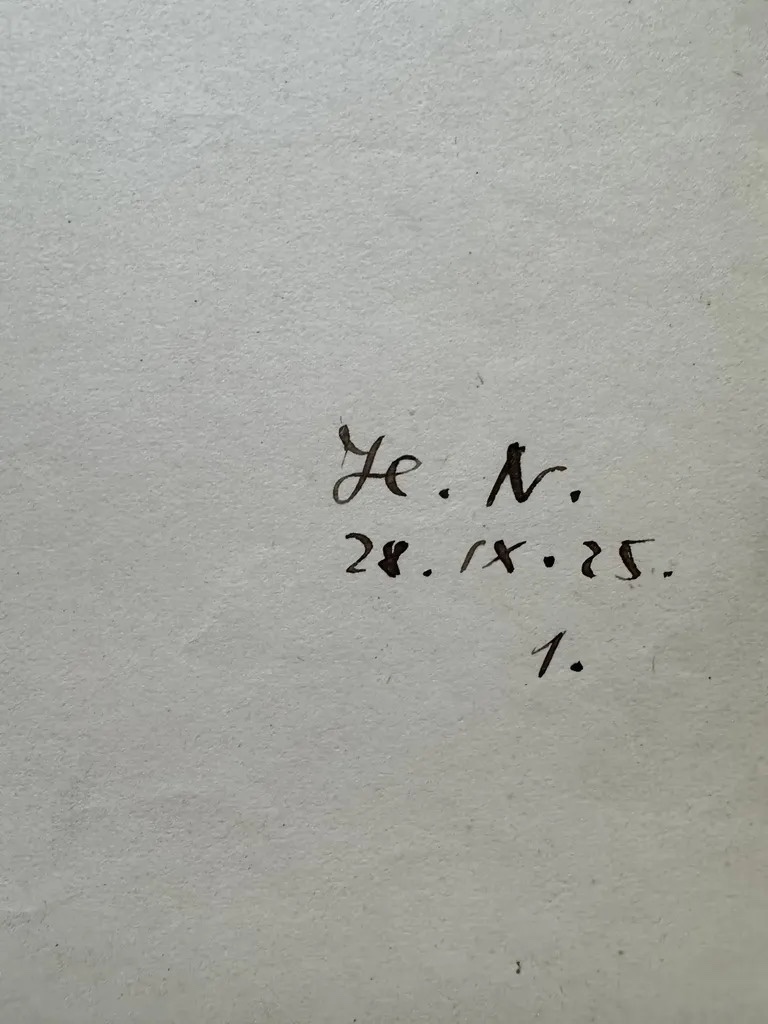 H. N.
28. IX. 25.
1.